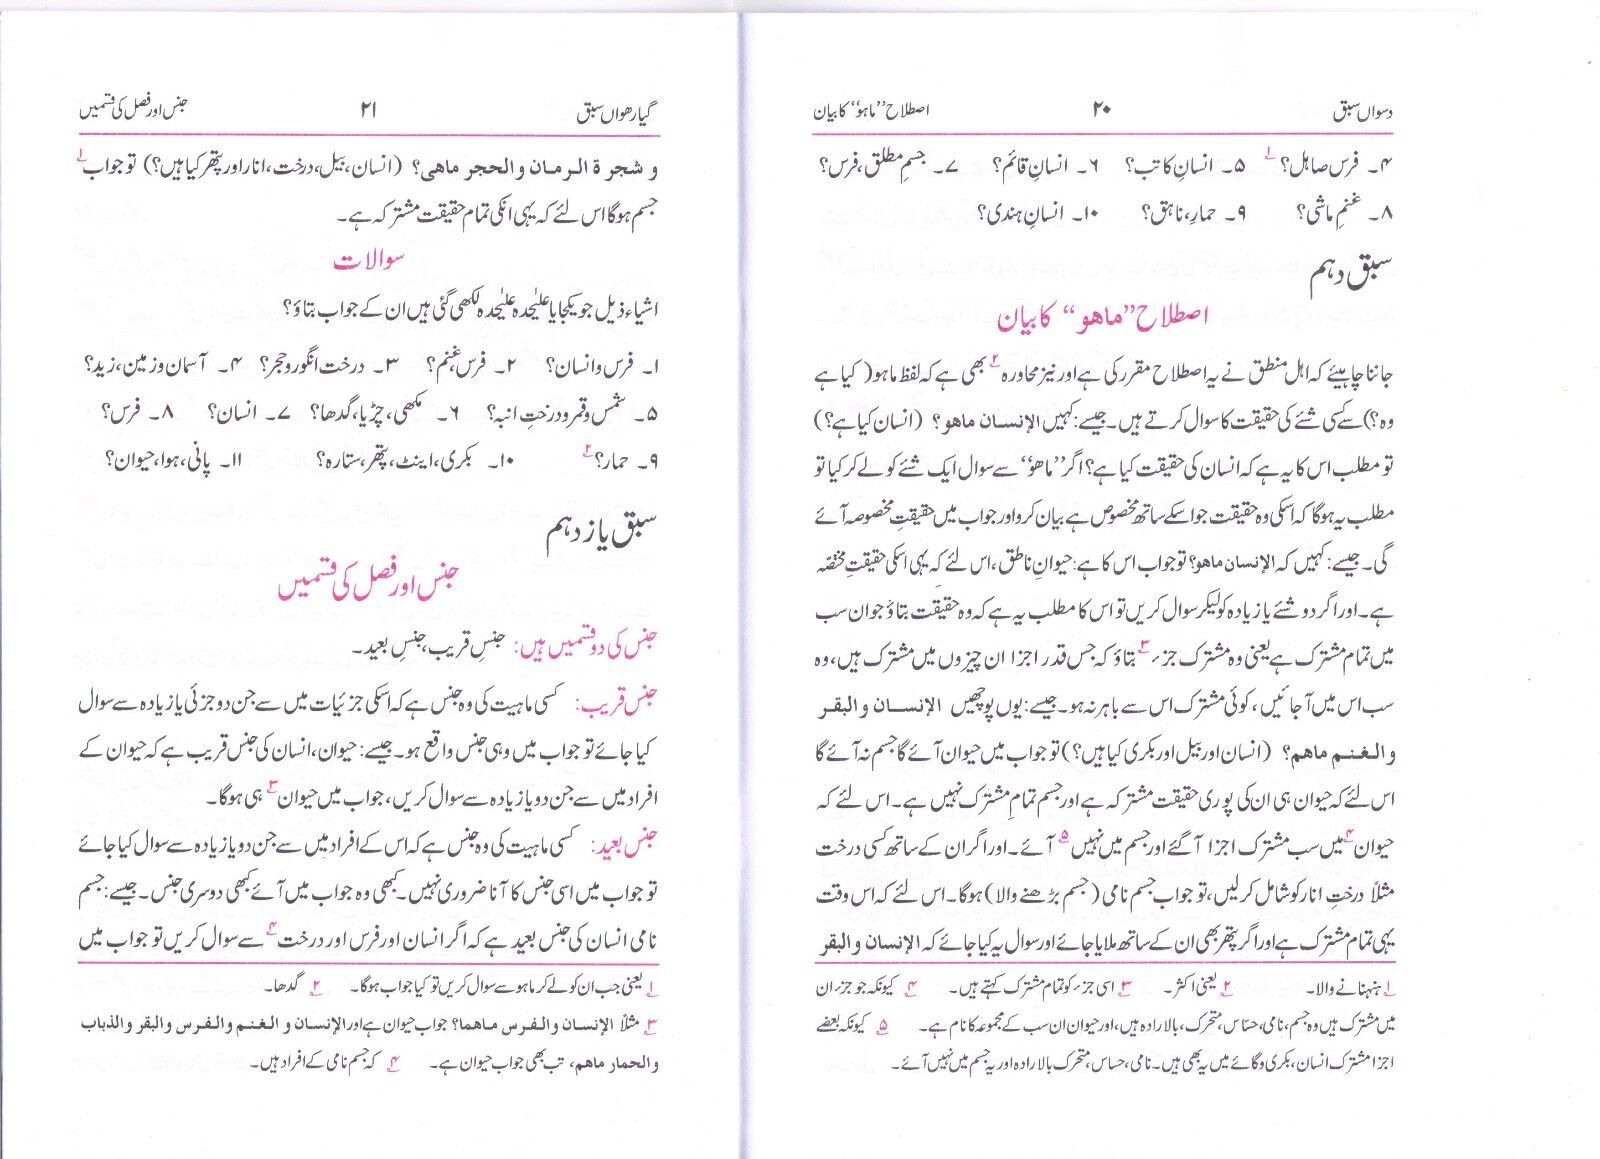 دسواں سبق ۲۰ اصطلاح ”ماہو“ کا بیان
۴۔ فرس صاہل؟ ۱ ۵۔ انسانِ کاتب؟ ۶۔ انسانِ قائم؟ ۷۔ جسمِ مطلق، فرس؟
۸۔ غنمِ ماشی؟ ۹۔ حمار، ناہق؟ ۱۰۔ انسانِ ہندی؟
سبق دہم
اصطلاح ”ماھو“ کا بیان
جاننا چاہیئے کہ اہل منطق نے یہ اصطلاح مقرر کی ہے اور نیز محاورہ ۲ بھی ہے کہ لفظ ماہو (کیا ہے
وہ؟) سے کسی شئے کی حقیقت کا سوال کرتے ہیں۔ جیسے: کہیں الإنسان ماھو؟ (انسان کیا ہے؟)
تو مطلب اس کا یہ ہے کہ انسان کی حقیقت کیا ہے؟ اگر ”ماھو“ سے سوال ایک شئے کو لے کر کیا تو
مطلب یہ ہوگا کہ اسکی وہ حقیقت جو اسکے ساتھ مخصوص ہے بیان کرو اور جواب میں حقیقتِ مخصوصہ آئے
گی۔ جیسے: کہیں کہ الإنسان ماھو؟ تو جواب اس کا ہے: حیوانِ ناطق، اس لئے کہ یہی اسکی حقیقتِ مختصّہ
ہے۔ اور اگر دو شئے یا زیادہ کو لیکر سوال کریں تو اس کا مطلب یہ ہے کہ وہ حقیقت بتاؤ جو ان سب
میں تمام مشترک ہے یعنی وہ مشترک جزء ۳ بتاؤ کہ جس قدر اجزا ان چیزوں میں مشترک ہیں، وہ
سب اس میں آجائیں، کوئی مشترک اس سے باہر نہ ہو۔ جیسے: یوں پوچھیں الإنسان والبقر
والغنم ماھم؟ (انسان اور بیل اور بکری کیا ہیں؟) تو جواب میں حیوان آئے گا جسم نہ آئے گا
اس لئے کہ حیوان ہی ان کی پوری حقیقت مشترکہ ہے اور جسم تمامِ مشترک نہیں ہے۔ اس لئے کہ
حیوان ۴ میں سب مشترک اجزا آگئے اور جسم میں نہیں ۵ آئے۔ اور اگر ان کے ساتھ کسی درخت
مثلاً درختِ انار کو شامل کرلیں، تو جواب جسم نامی (جسم بڑھنے والا) ہوگا۔ اس لئے کہ اس وقت
یہی تمام مشترک ہے اور اگر پتھر بھی ان کے ساتھ ملایا جائے اور سوال یہ کیا جائے کہ الإنسان والبقر
۱ ہنہنانے والا۔ ۲ یعنی اکثر۔ ۳ اسی جزء کو تمام مشترک کہتے ہیں۔ ۴ کیونکہ جو جزء ان
میں مشترک ہیں وہ جسم، نامی، حسّاس، متحرک، بالارادہ ہیں، اور حیوان ان سب کے مجموعہ کا نام ہے۔ ۵ کیونکہ بعضے
اجزا مشترک انسان، بکری و گائے میں یہ بھی ہیں۔ نامی، حساس، متحرک بالارادہ اور یہ جسم میں نہیں آئے۔
گیارھواں سبق ۲۱ جنس اور فصل کی قسمیں
وشجرۃ الرمان والحجر ماھی؟ (انسان، بیل، درخت، انار اور پتھر کیا ہیں؟) تو جواب ۱
جسم ہوگا اس لئے کہ یہی انکی تمام حقیقت مشترکہ ہے۔
سوالات
اشیاء ذیل جو یکجا یا علیٰحدہ علیٰحدہ لکھی گئی ہیں ان کے جواب بتاؤ؟
۱۔ فرس و انسان؟ ۲۔ فرس، غنم؟ ۳۔ درخت انگور و حجر؟ ۴۔ آسمان و زمین، زید؟
۵۔ شمس و قمر و درختِ انبہ؟ ۶۔ مکھی، چڑیا، گدھا؟ ۷۔ انسان؟ ۸۔ فرس؟
۹۔ حمار؟ ۲ ۱۰۔ بکری، اینٹ، پتھر، ستارہ؟ ۱۱۔ پانی، ہوا، حیوان؟
سبق یازدہم
جنس اور فصل کی قسمیں
جنس کی دو قسمیں ہیں: جنسِ قریب، جنسِ بعید۔
جنس قریب: کسی ماہیت کی وہ جنس ہے کہ اسکی جزئیات میں سے جن دو جزئی یا زیادہ سے سوال
کیا جائے تو جواب میں وہی جنس واقع ہو۔ جیسے: حیوان، انسان کی جنس قریب ہے کہ حیوان کے
افراد میں سے جن دو یا زیادہ سے سوال کریں، جواب میں حیوان ۳ ہی ہوگا۔
جنس بعید: کسی ماہیت کی وہ جنس ہے کہ اس کے افراد میں سے جن دو یا زیادہ سے سوال کیا جائے
تو جواب میں اسی جنس کا آنا ضروری نہیں۔ کبھی وہ جواب میں آئے کبھی دوسری جنس۔ جیسے: جسم
نامی انسان کی جنس بعید ہے کہ اگر انسان اور فرس اور درخت ۴ سے سوال کریں تو جواب میں
۱ یعنی جب ان کو لے کر ماہو سے سوال کریں تو کیا جواب ہوگا۔ ۲ گدھا۔
۳ مثلاً الإنسان والفرس ماھما؟ جواب حیوان ہے اور الإنسان والغنم والفرس والبقر والذباب
والحمار ماھم، تب بھی جواب حیوان ہے۔ ۴ کہ جسم نامی کے افراد ہیں۔